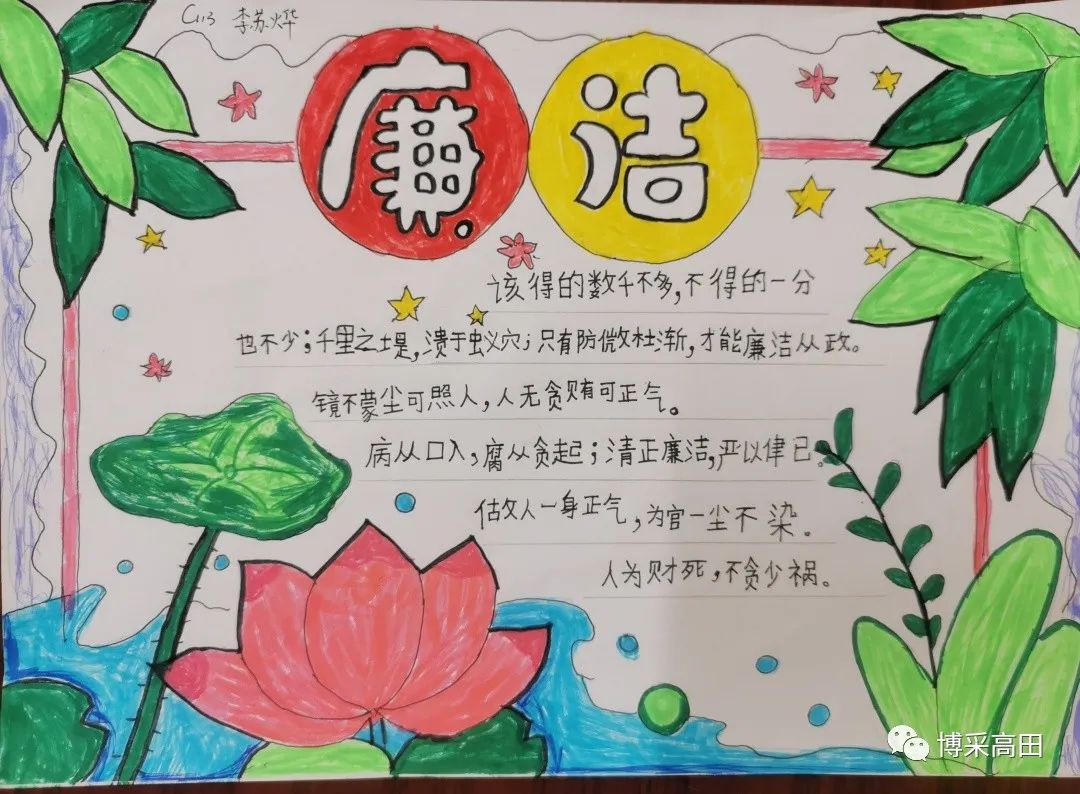 C113 李苏烨
廉洁
该得的数千不多,不得的一分
也不少;千里之堤,溃于蚁穴;只有防微杜渐,才能廉洁从政。
镜不蒙尘可照人,人无贪贿可正气。
病从口入,腐从贪起;清正廉洁,严以律己。
估攵人一身正气,为官一尘不染。
人为财死,不贪少祸。
博采高田